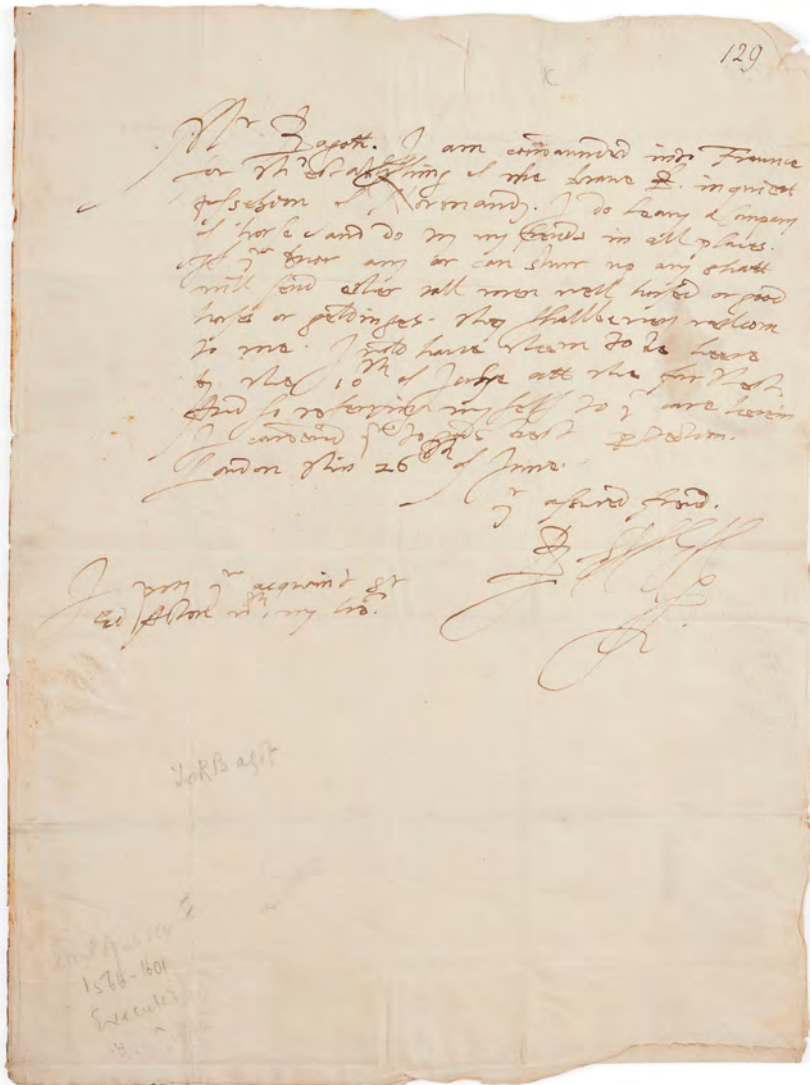 129
Mr Bagott. I am comaunded into Fraunce
for th'establishing of the brave K. in quiet
possession of Normandy. I do leavy a Company
of horse and do try my frends in all places.
If yu know any or can sturr up any that
will send ether tall men well horsed or good
horses or geldinges. they shall be very wellcom
to me. I wold have them to be heere
by the 10th of Julye att the furthest.
And so referring my self to yr care heerein
I comend yu to gods best protection.
London this 26th of June.
yr assured frend.
R Essex
I pray yu acquaint Sr
Ed Aston wth my lre.
To R Bagot
Earl of Essex
1566-1601
Executed